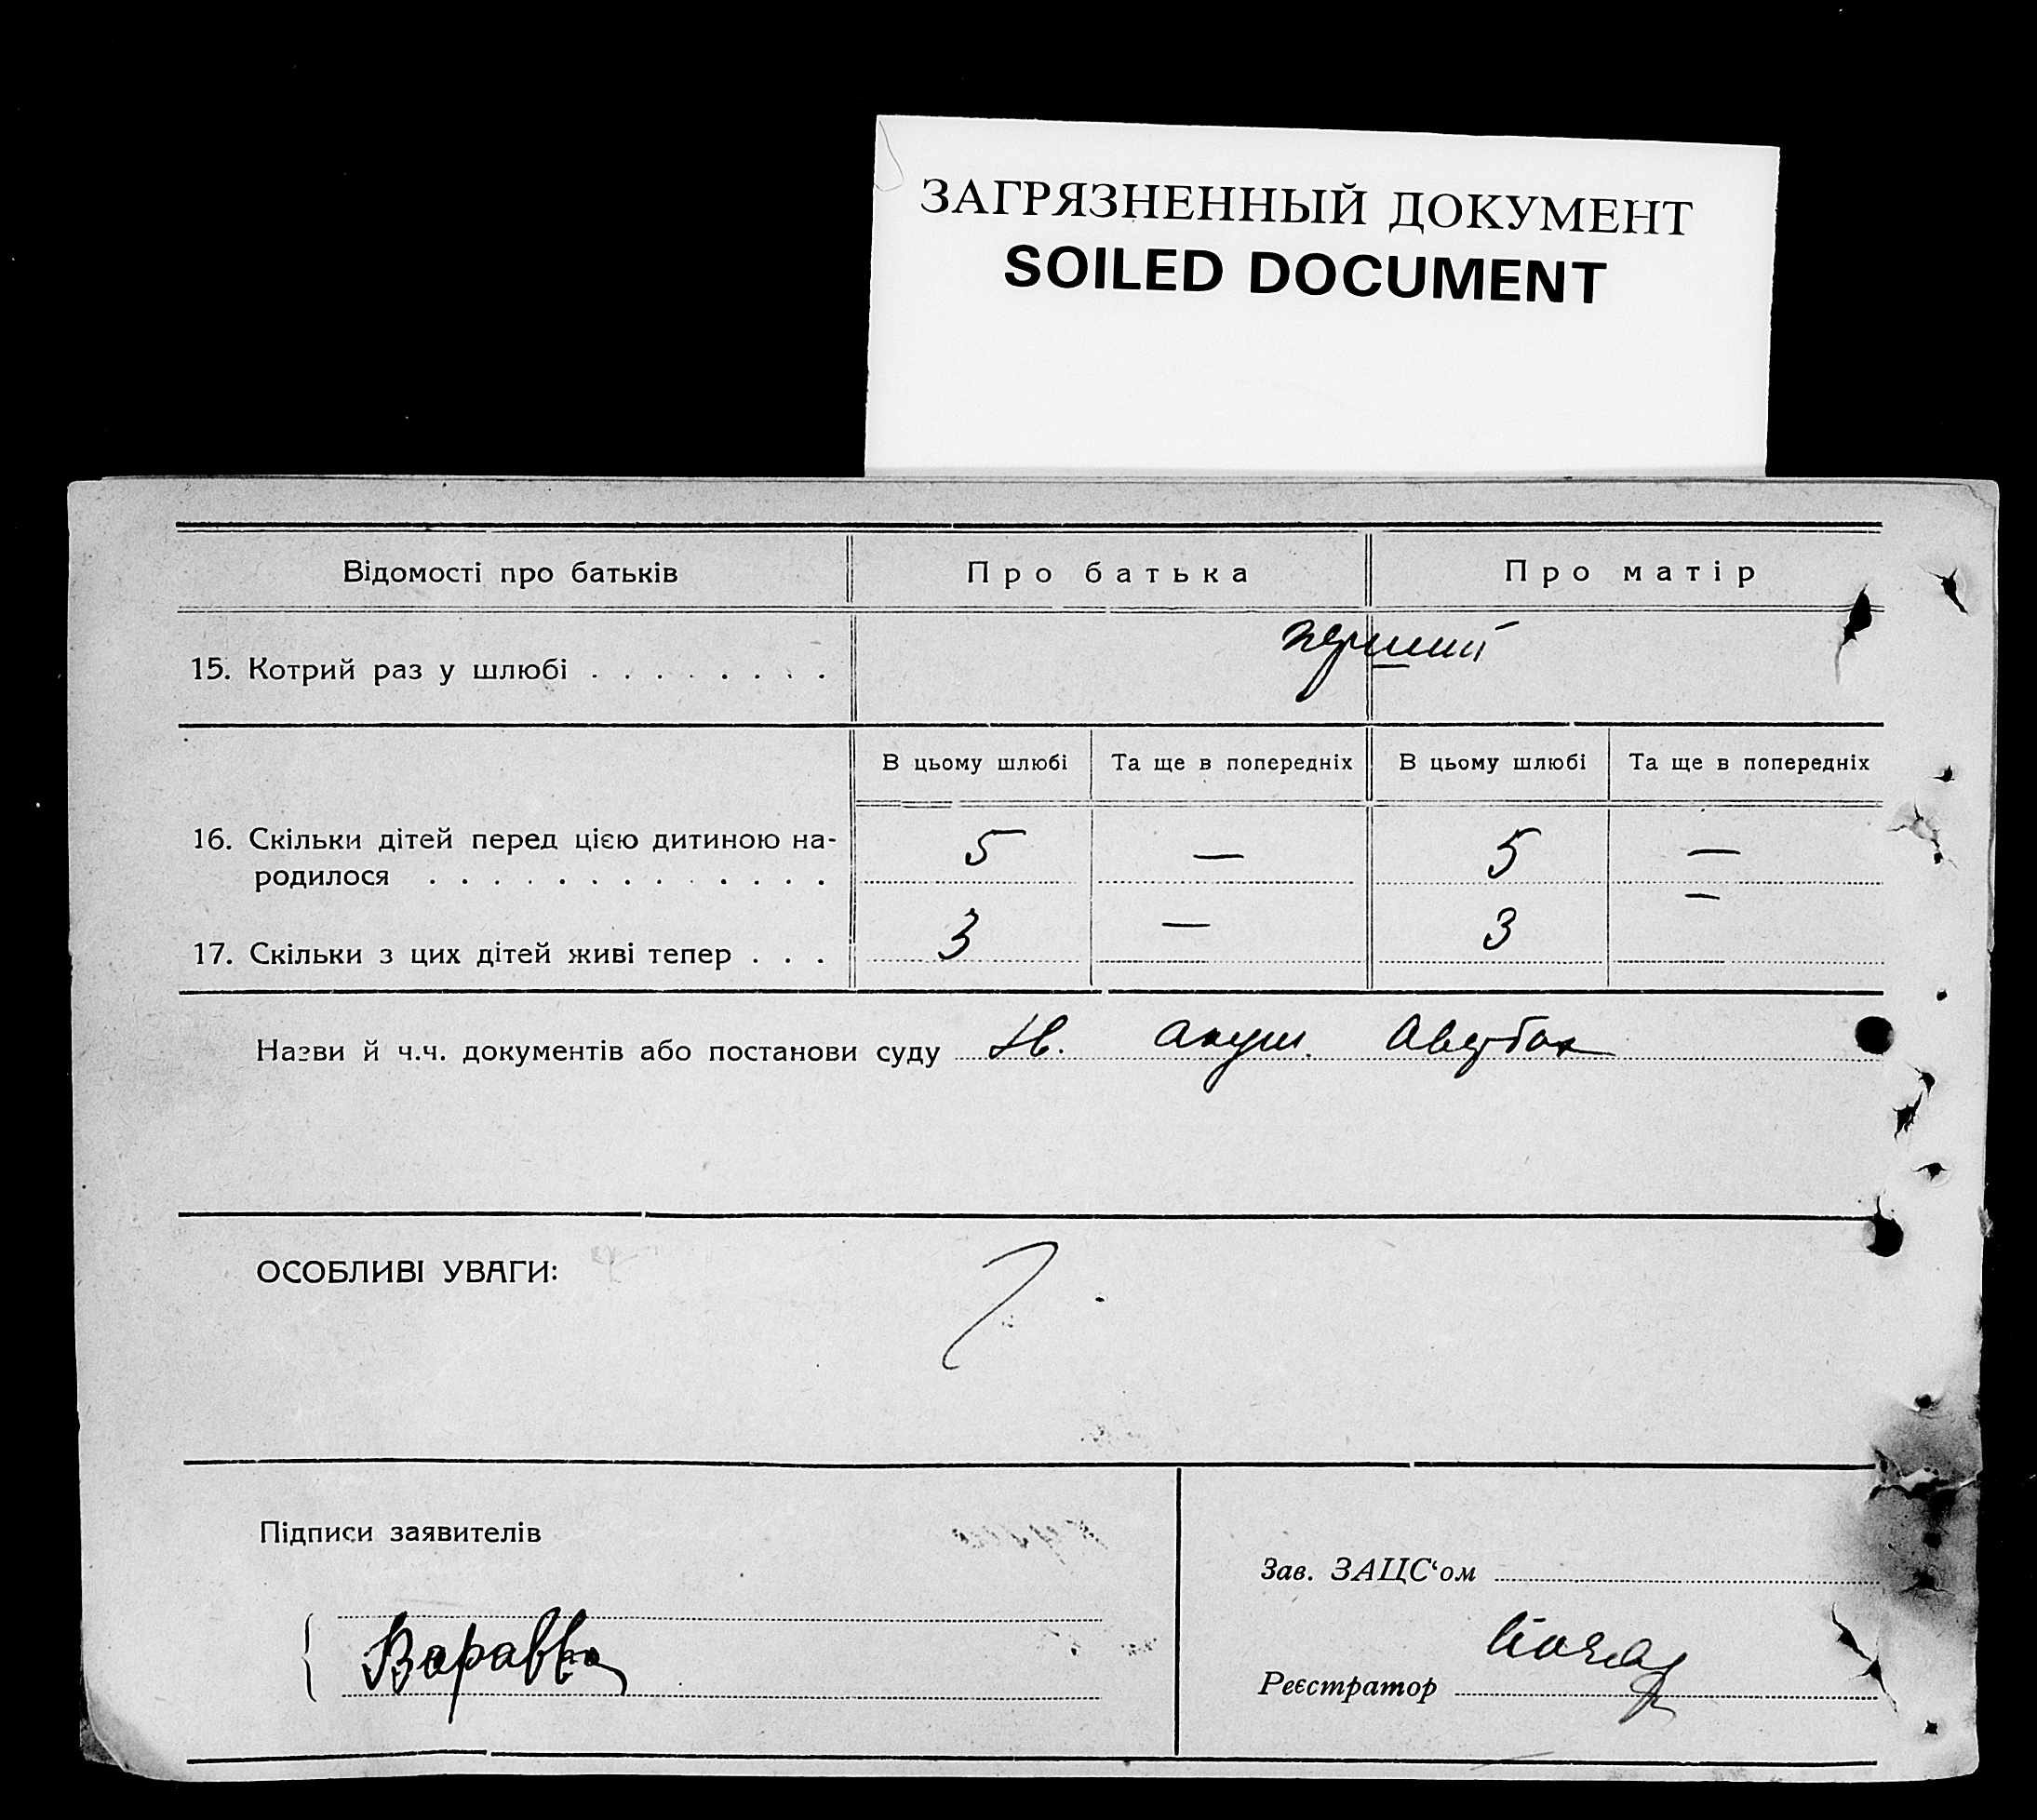 ЗАГРЯЗНЕННЫЙ ДОКУМЕНТ
SOILED DOCUMENT
Відомості про батьків Про батька Про матір
перший
15. Котрий раз у шлюбі . . . . . . . .
В цьому шлюбі Та ще в попередніх В цьому шлюбі Та ще в попередніх
16. Скільки дітей перед цією дитиною на-
родилося . . . . . . . . . . . . . 5 — 5 —
17. Скільки з цих дітей живі тепер . . . 3 — 3 —
Назви й ч.ч. документів або постанови суду акуш.
ОСОБЛИВІ УВАГИ:
Підписи заявителів
Зав. ЗАЦС‘ом
Варавва
Реєстратор